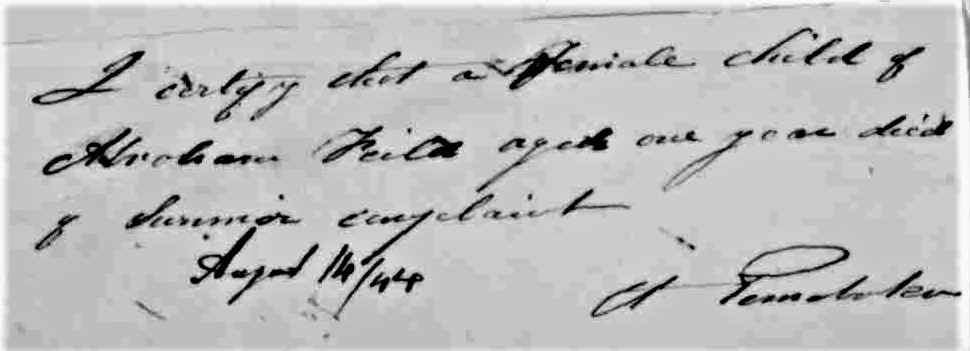 I certify that a Female child of
Abraham Feild aged one year died
of Summer complaint
August 14/44
A